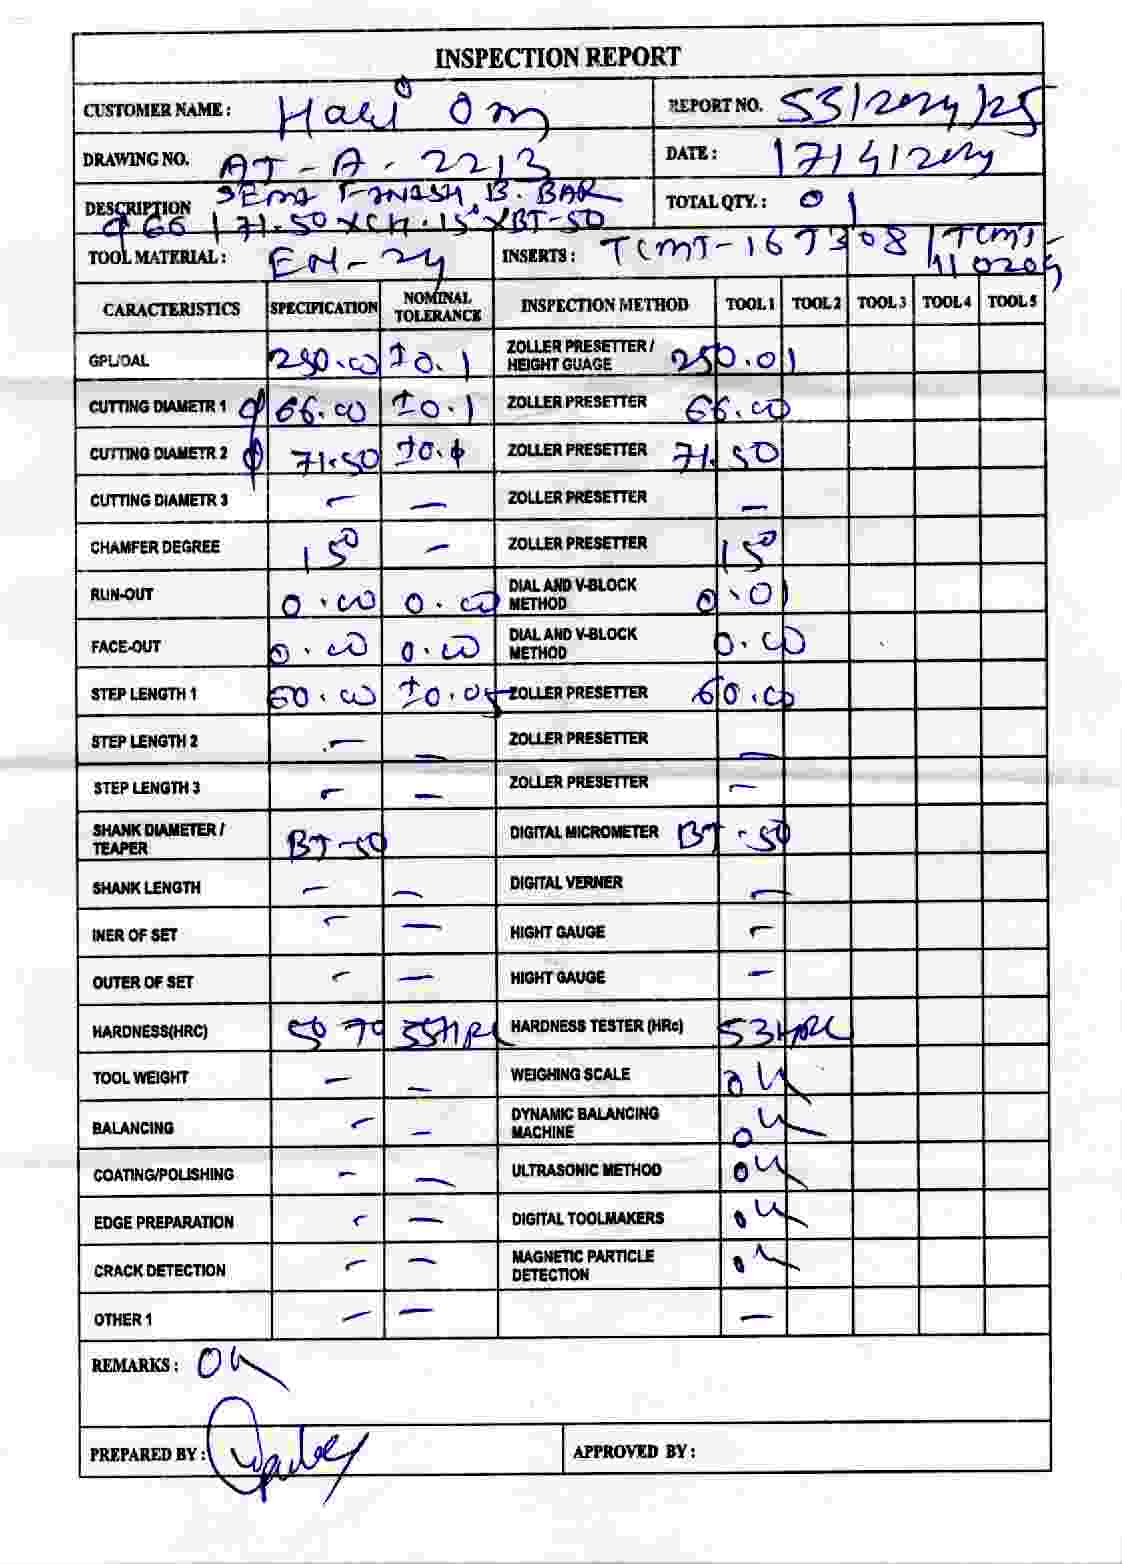 INSPECTION REPORT
CUSTOMER NAME : Hari Om
REPORT NO. 53/2024/25
DRAWING NO. AT-A-2213
DATE : 17/4/2024
DESCRIPTION SEMI FINASH B. BAR
φ66 / 71.50 X CH.15° X BT-50
TOTAL QTY. : 01
TOOL MATERIAL : EN-24
INSERTS : TCMT-16T308 / TCMT-110204
CARACTERISTICS SPECIFICATION NOMINAL TOLERANCE INSPECTION METHOD TOOL 1 TOOL 2 TOOL 3 TOOL 4 TOOL 5
GPL/OAL 250.00 ±0.1 ZOLLER PRESETTER / HEIGHT GUAGE 250.01
CUTTING DIAMETR 1 φ 66.00 ±0.1 ZOLLER PRESETTER 66.00
CUTTING DIAMETR 2 φ 71.50 ±0.1 ZOLLER PRESETTER 71.50
CUTTING DIAMETR 3 – – ZOLLER PRESETTER –
CHAMFER DEGREE 15° – ZOLLER PRESETTER 15°
RUN-OUT 0.00 0.00 DIAL AND V-BLOCK METHOD 0.01
FACE-OUT 0.00 0.00 DIAL AND V-BLOCK METHOD 0.00
STEP LENGTH 1 60.00 ±0.05 ZOLLER PRESETTER 60.00
STEP LENGTH 2 – – ZOLLER PRESETTER –
STEP LENGTH 3 – – ZOLLER PRESETTER –
SHANK DIAMETER / TEAPER BT-50 DIGITAL MICROMETER BT-50
SHANK LENGTH – – DIGITAL VERNER –
INER OF SET – – HIGHT GAUGE –
OUTER OF SET – – HIGHT GAUGE –
HARDNESS(HRC) 50 TO 55HRC HARDNESS TESTER (HRc) 53HRC
TOOL WEIGHT – – WEIGHING SCALE OK
BALANCING – – DYNAMIC BALANCING MACHINE OK
COATING/POLISHING – – ULTRASONIC METHOD OK
EDGE PREPARATION – – DIGITAL TOOLMAKERS OK
CRACK DETECTION – – MAGNETIC PARTICLE DETECTION OK
OTHER 1 – – –
REMARKS : OK
PREPARED BY :
APPROVED BY :